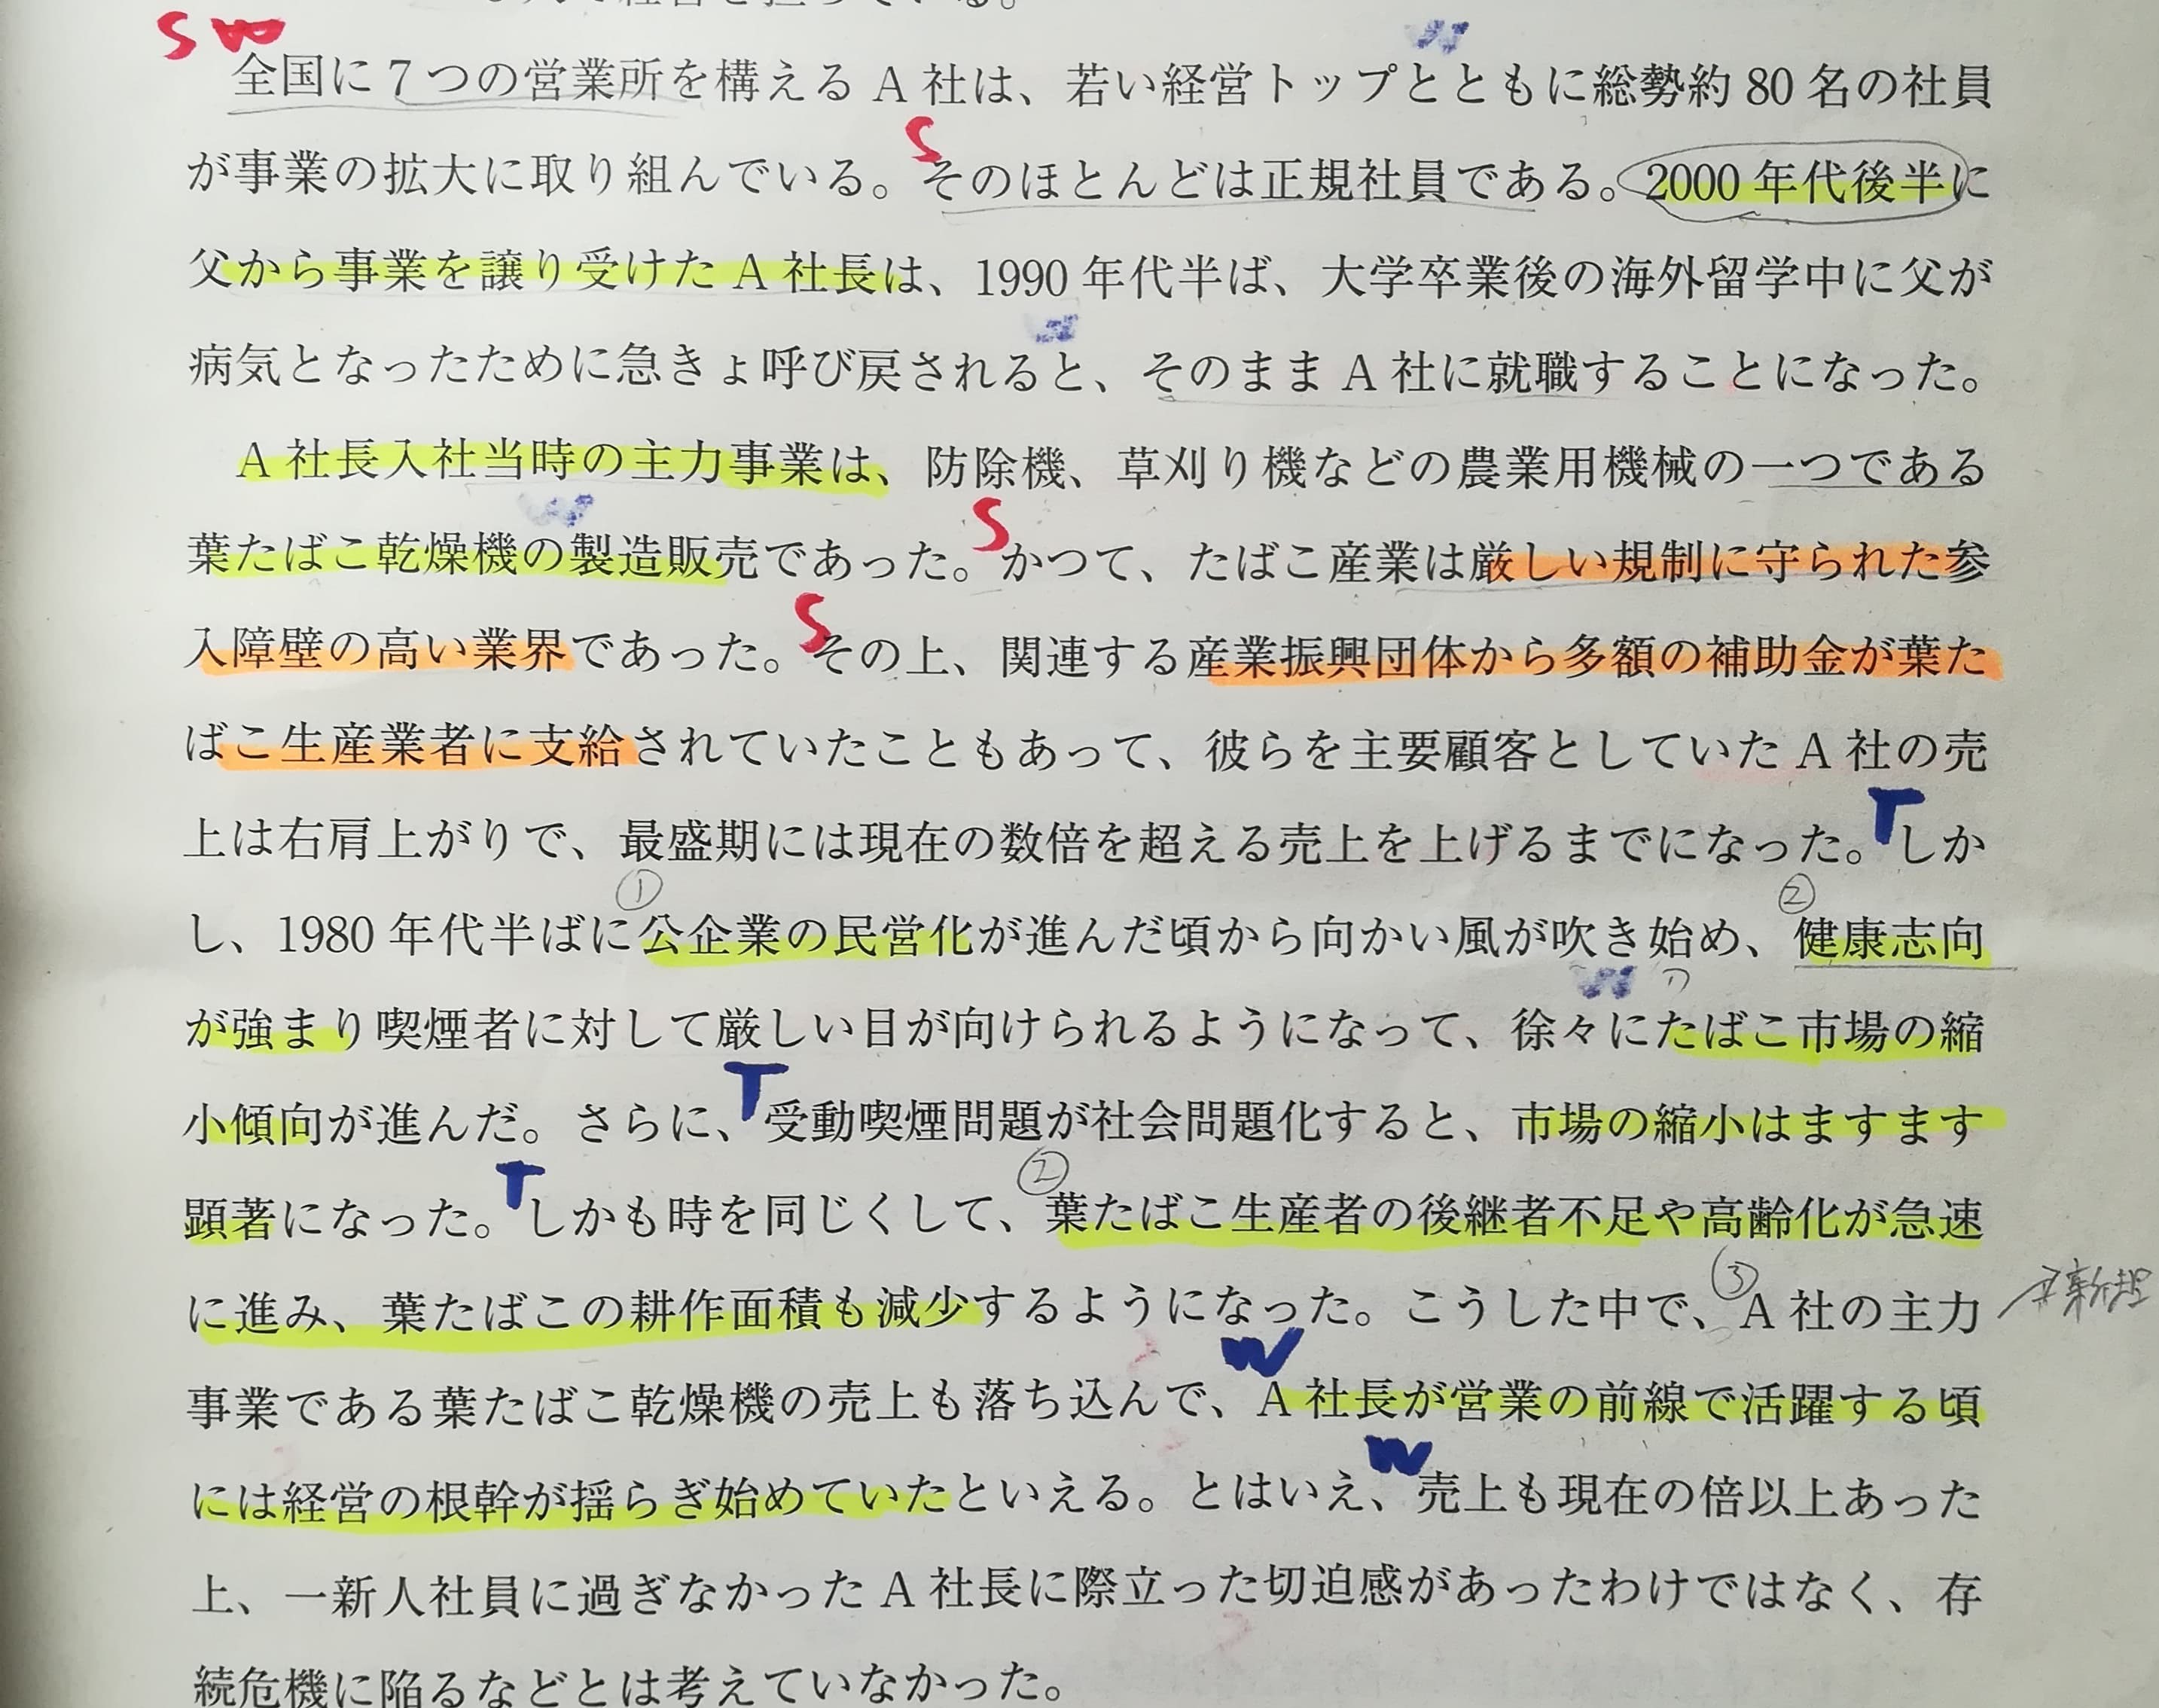 経営を担っている。
S W
全国に７つの営業所を構える A 社は、若い経営トップとともに総勢約 80 名の社員
S
が事業の拡大に取り組んでいる。そのほとんどは正規社員である。2000 年代後半に
父から事業を譲り受けた A 社長は、1990 年代半ば、大学卒業後の海外留学中に父が
病気となったために急きょ呼び戻されると、そのまま A 社に就職することになった。
A 社長入社当時の主力事業は、防除機、草刈り機などの農業用機械の一つである
S
葉たばこ乾燥機の製造販売であった。かつて、たばこ産業は厳しい規制に守られた参
S
入障壁の高い業界であった。その上、関連する産業振興団体から多額の補助金が葉た
ばこ生産業者に支給されていたこともあって、彼らを主要顧客としていた A 社の売
T
上は右肩上がりで、最盛期には現在の数倍を超える売上を上げるまでになった。しか
① ②
し、1980 年代半ばに公企業の民営化が進んだ頃から向かい風が吹き始め、健康志向
が強まり喫煙者に対して厳しい目が向けられるようになって、徐々にたばこ市場の縮
T
小傾向が進んだ。さらに、受動喫煙問題が社会問題化すると、市場の縮小はますます
T ②
顕著になった。しかも時を同じくして、葉たばこ生産者の後継者不足や高齢化が急速
③
に進み、葉たばこの耕作面積も減少するようになった。こうした中で、A 社の主力
W
事業である葉たばこ乾燥機の売上も落ち込んで、A 社長が営業の前線で活躍する頃
W
には経営の根幹が揺らぎ始めていたといえる。とはいえ、売上も現在の倍以上あった
上、一新人社員に過ぎなかった A 社長に際立った切迫感があったわけではなく、存
続危機に陥るなどとは考えていなかった。